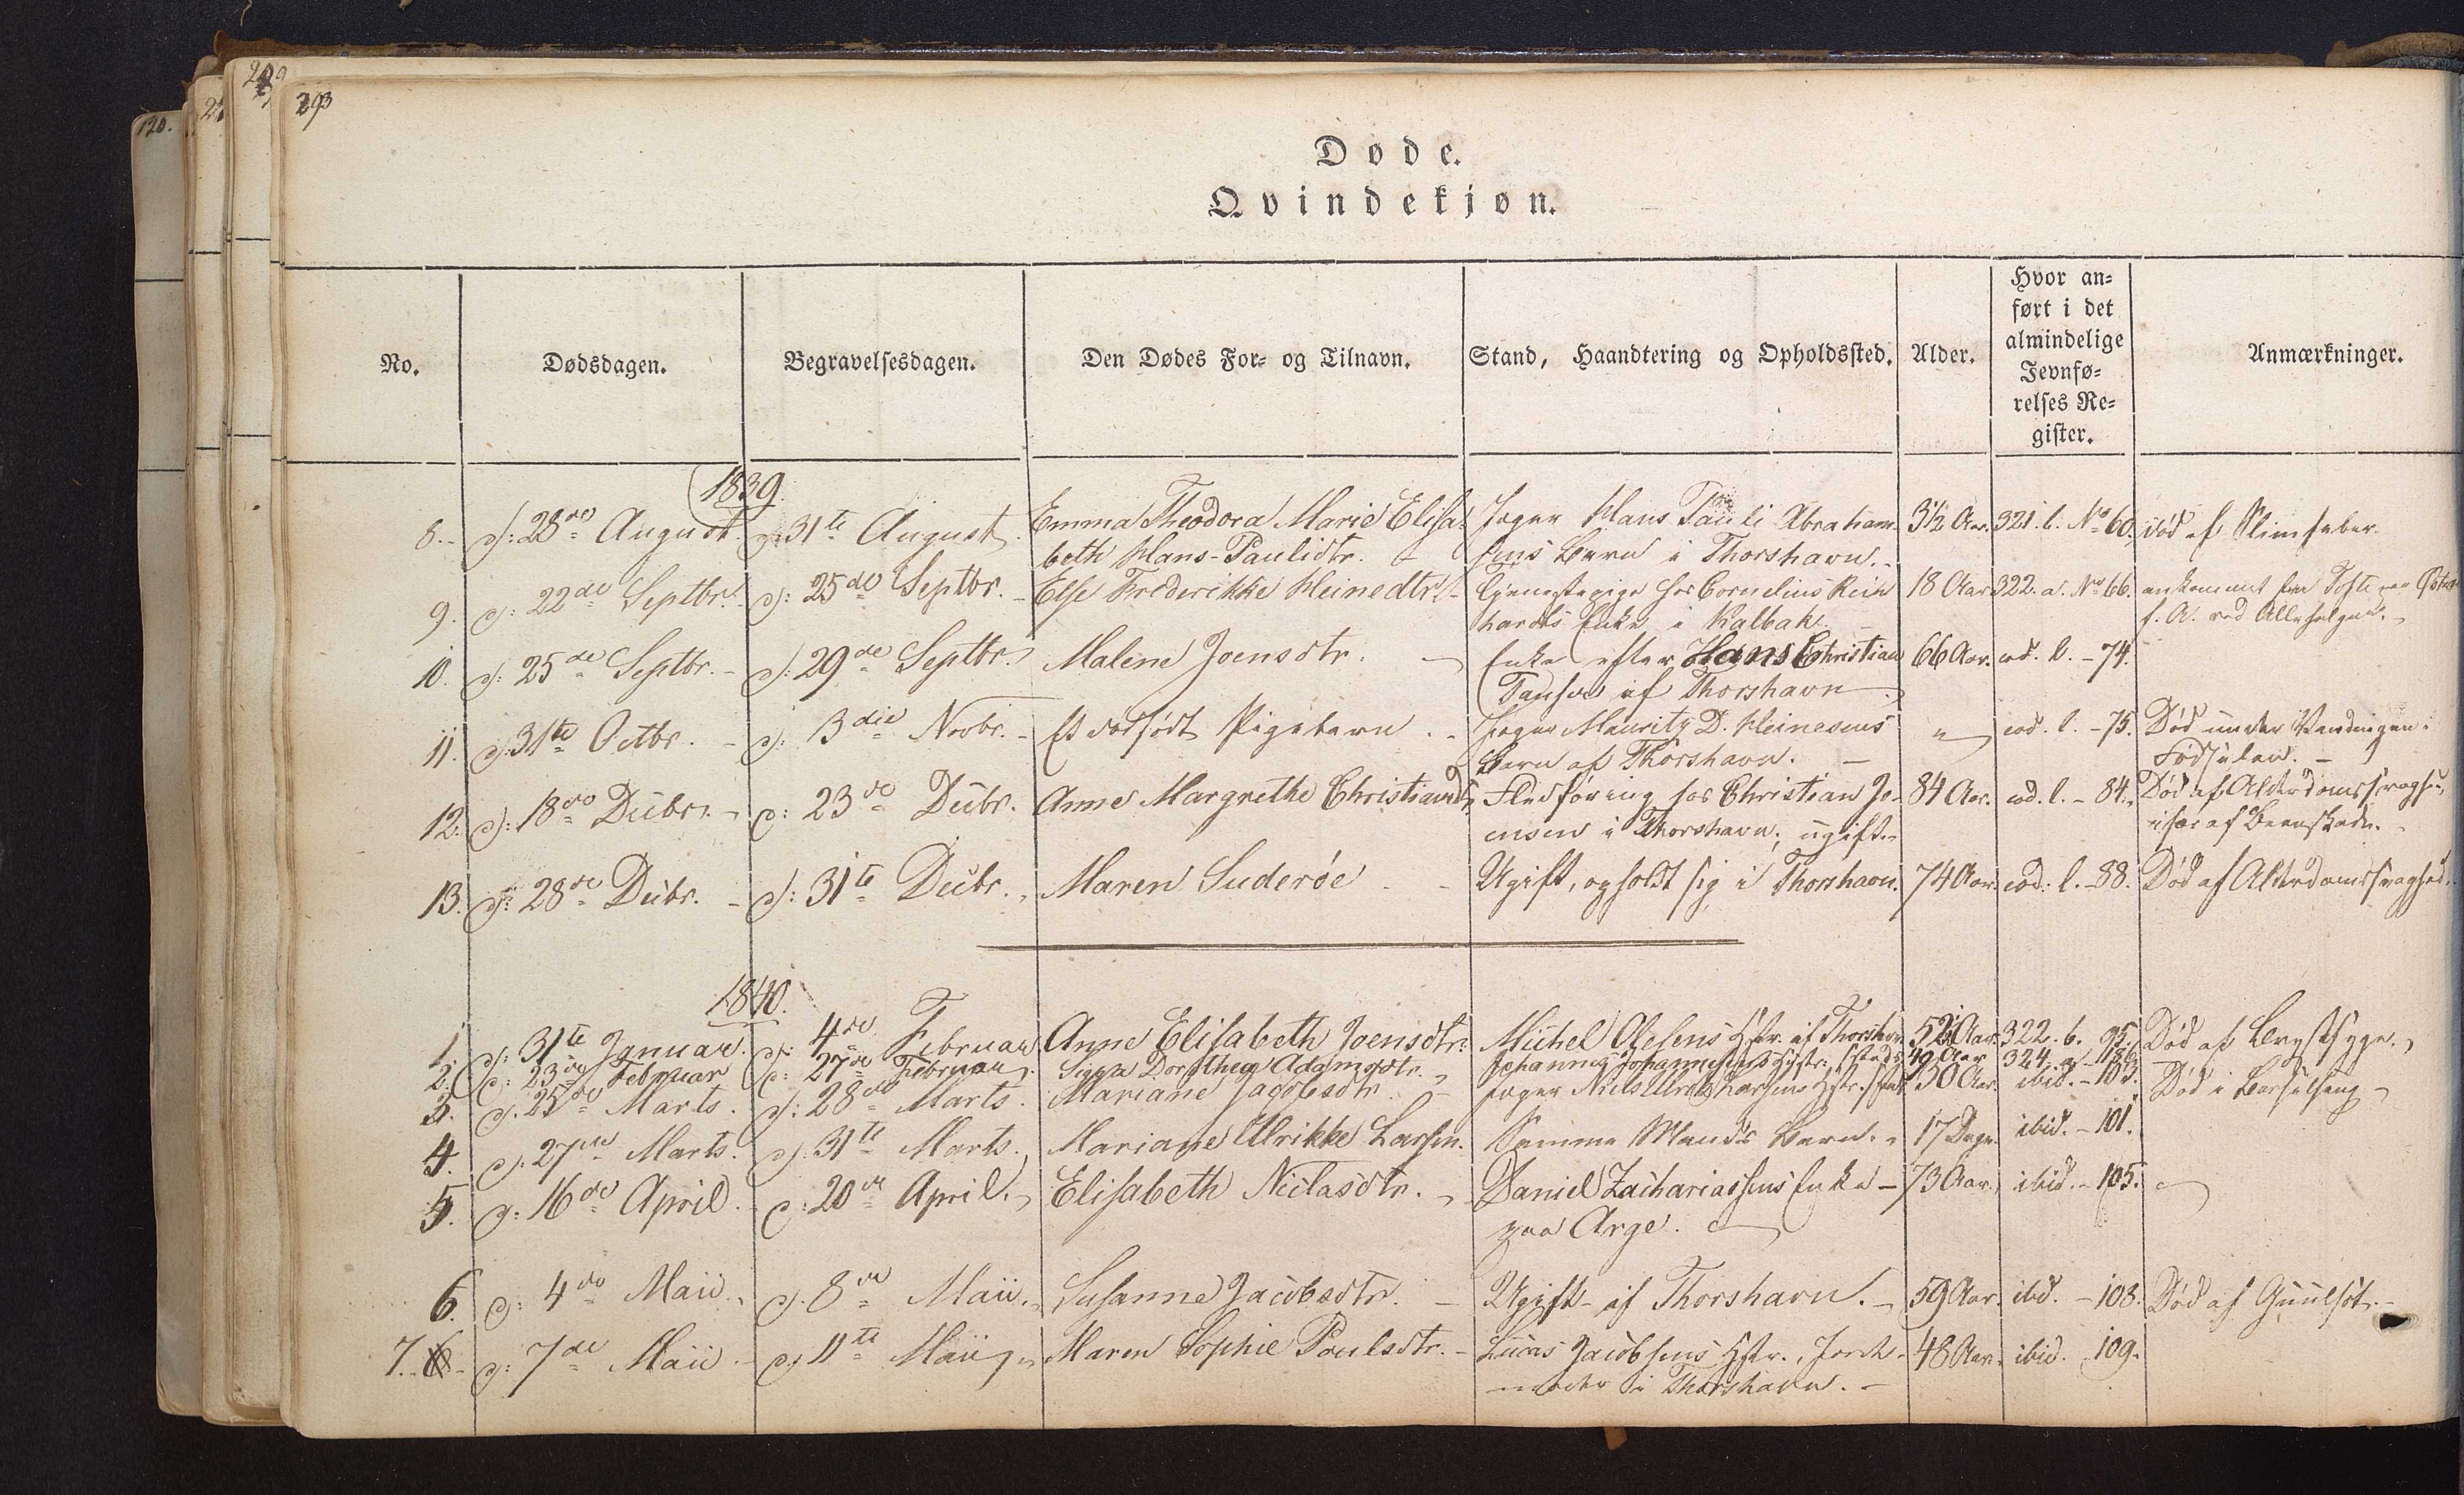 293
120.
Døde.
Qvindekjøn.
No.
Dødsdagen.
Begravelsesdagen.
Den Dødes For- og Tilnavn.
Stand, Haandtering og Opholdssted.
Alder.
Hvor an-
ført i det
almindelige
Jevnfø-
relses Re-
gister.
Anmærkninger.
1839.
8. d: 28de August. d: 31te August. Emma Theodora Marie Elisa- Jeger Hans Pauli Abraham- 3½ Aar. 321. b. No 60. død af Slimfeber.
beth Hans-Paulidtr. sens Barn i Thorshavn.
9. d: 22de Septbr. d: 25de Septbr. Else Frederikke Heinedtr. Tjenestepige hos Cornelius Rein 18 Aar 322. a. No 66. ankommet fra
hardts Enke i Kalbak. f. A. ved Allehelgen.
10. d: 25de Septbr. d: 29de Septbr. Malene Joensdtr. Enke efter Hans Christian 66 Aar. eod. l. - 74.
af Thorshavn
11. d: 31te Octbr. d: 3die Novbr. Et dødfødt Pigebarn. Jeger Mauritz D. Heinesens " eod. l. - 75. Død under Vendingen i
Barn af Thorshavn. Fødselen.
12. d: 18de Decbr. d: 23de Decbr. Anne Margrethe Christiansdtr. Fledføring hos Christian Jo- 84 Aar. eod. l. - 84. Død af Alderdomssvaghed,
ensen i Thorshavn, ugift. især af Beenskade.
13. d: 28de Decbr. d: 31te Decbr. Maren Suderöe Ugift, opholdt sig i Thorshavn. 74 Aar. eod. l. - 88. Død af Alderdomssvaghed.
1840.
1. d: 31te Januar. d: 4de Februar Anne Elisabeth Joensdtr. Michel Olesens Hstr. af Thorshvn 52 Aar. 322. b. 95. Død af Brystsyge.
2. d: 23de Februar d: 27de Februar. Dorthea Adamsdtr. Johannes Johannesens Hstr. 49 Aar 324. a.
3. d: 25de Marts. d: 28de Marts. Mariane Jacobsdtr. Jeger Niels Larsens Hstr. 30 Aar. ibid. - 103. Død i Barselseng
4. d: 27de Marts. d: 31te Marts. Mariane Ulrikke Larsen. Samme Mands Barn. 17 Dage. ibid. - 101.
5. d: 16de April. d: 20de April. Elisabeth Niclasdtr. Daniel Zachariassens Enke 73 Aar. ibid. - 105.
paa Arge.
6. d: 4de Maii. d: 8de Maii. Susanne Jacobsdtr. Ugift af Thorshavn. 59 Aar. ibd. - 108. Død af Guulsot.
7. d: 7de Maii d: 11te Maii Maren Sophie Poulsdtr. Jacobsens Hstr., Jorde- 48 Aar. ibid. - 109.
moder i Thorshavn.